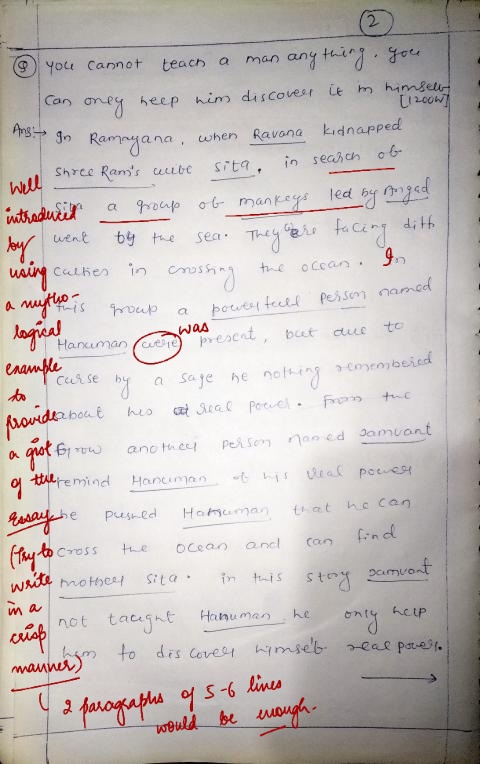 2
Q You cannot teach a man anything. You
can only help him discover it in himself
[1200W]
Ans:→ In Ramayana, when Ravana kidnapped
Shree Ram's wife Sita. in search of
Sita a group of mankeys led by Angad
went by the sea. They are facing diff
culties in crossing the ocean. In
this group a powerfull person named
Hanuman were present, but due to
was
curse by a sage he nothing remembered
about his real power. From the
Grow another person named Jamvant
remind Hanuman of his real power
he pushed Hanuman that he can
cross the ocean and can find
mother Sita. in this story Jamvant
not taught Hanuman he only help
him to discover himself real power.
Well
introduced
by
using
a mytho-
logical
example
to
provide
a gist
of the
Essay
(Try to
write
in a
crisp
manner)
( 2 paragraphs of 5-6 lines
would be enough.